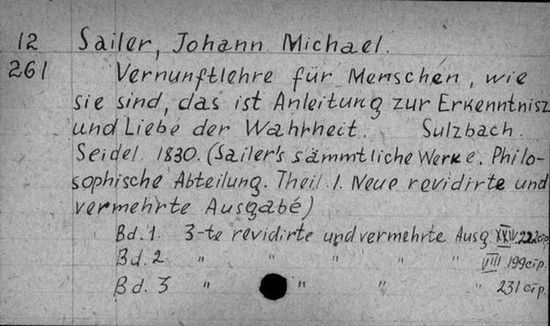 12 Sailer, Johann Michael.
261 Vernunftlehre für Menschen, wie
sie sind, das ist Anleitung zur Erkenntnisz
und Liebe der Wahrheit. Sulzbach.
Seidel. 1830. (Sailer's sämmtliche Werke. Philo-
sophische Abteilung. Theil. 1. Neue revidirte und
vermehrte Ausgabé)
Bd. 1 3-te revidirte und vermehrte Ausg XXIV. 222 стр.
Bd. 2 " " " " " VIII 199 стр.
Bd. 3 " " " 231 стр.